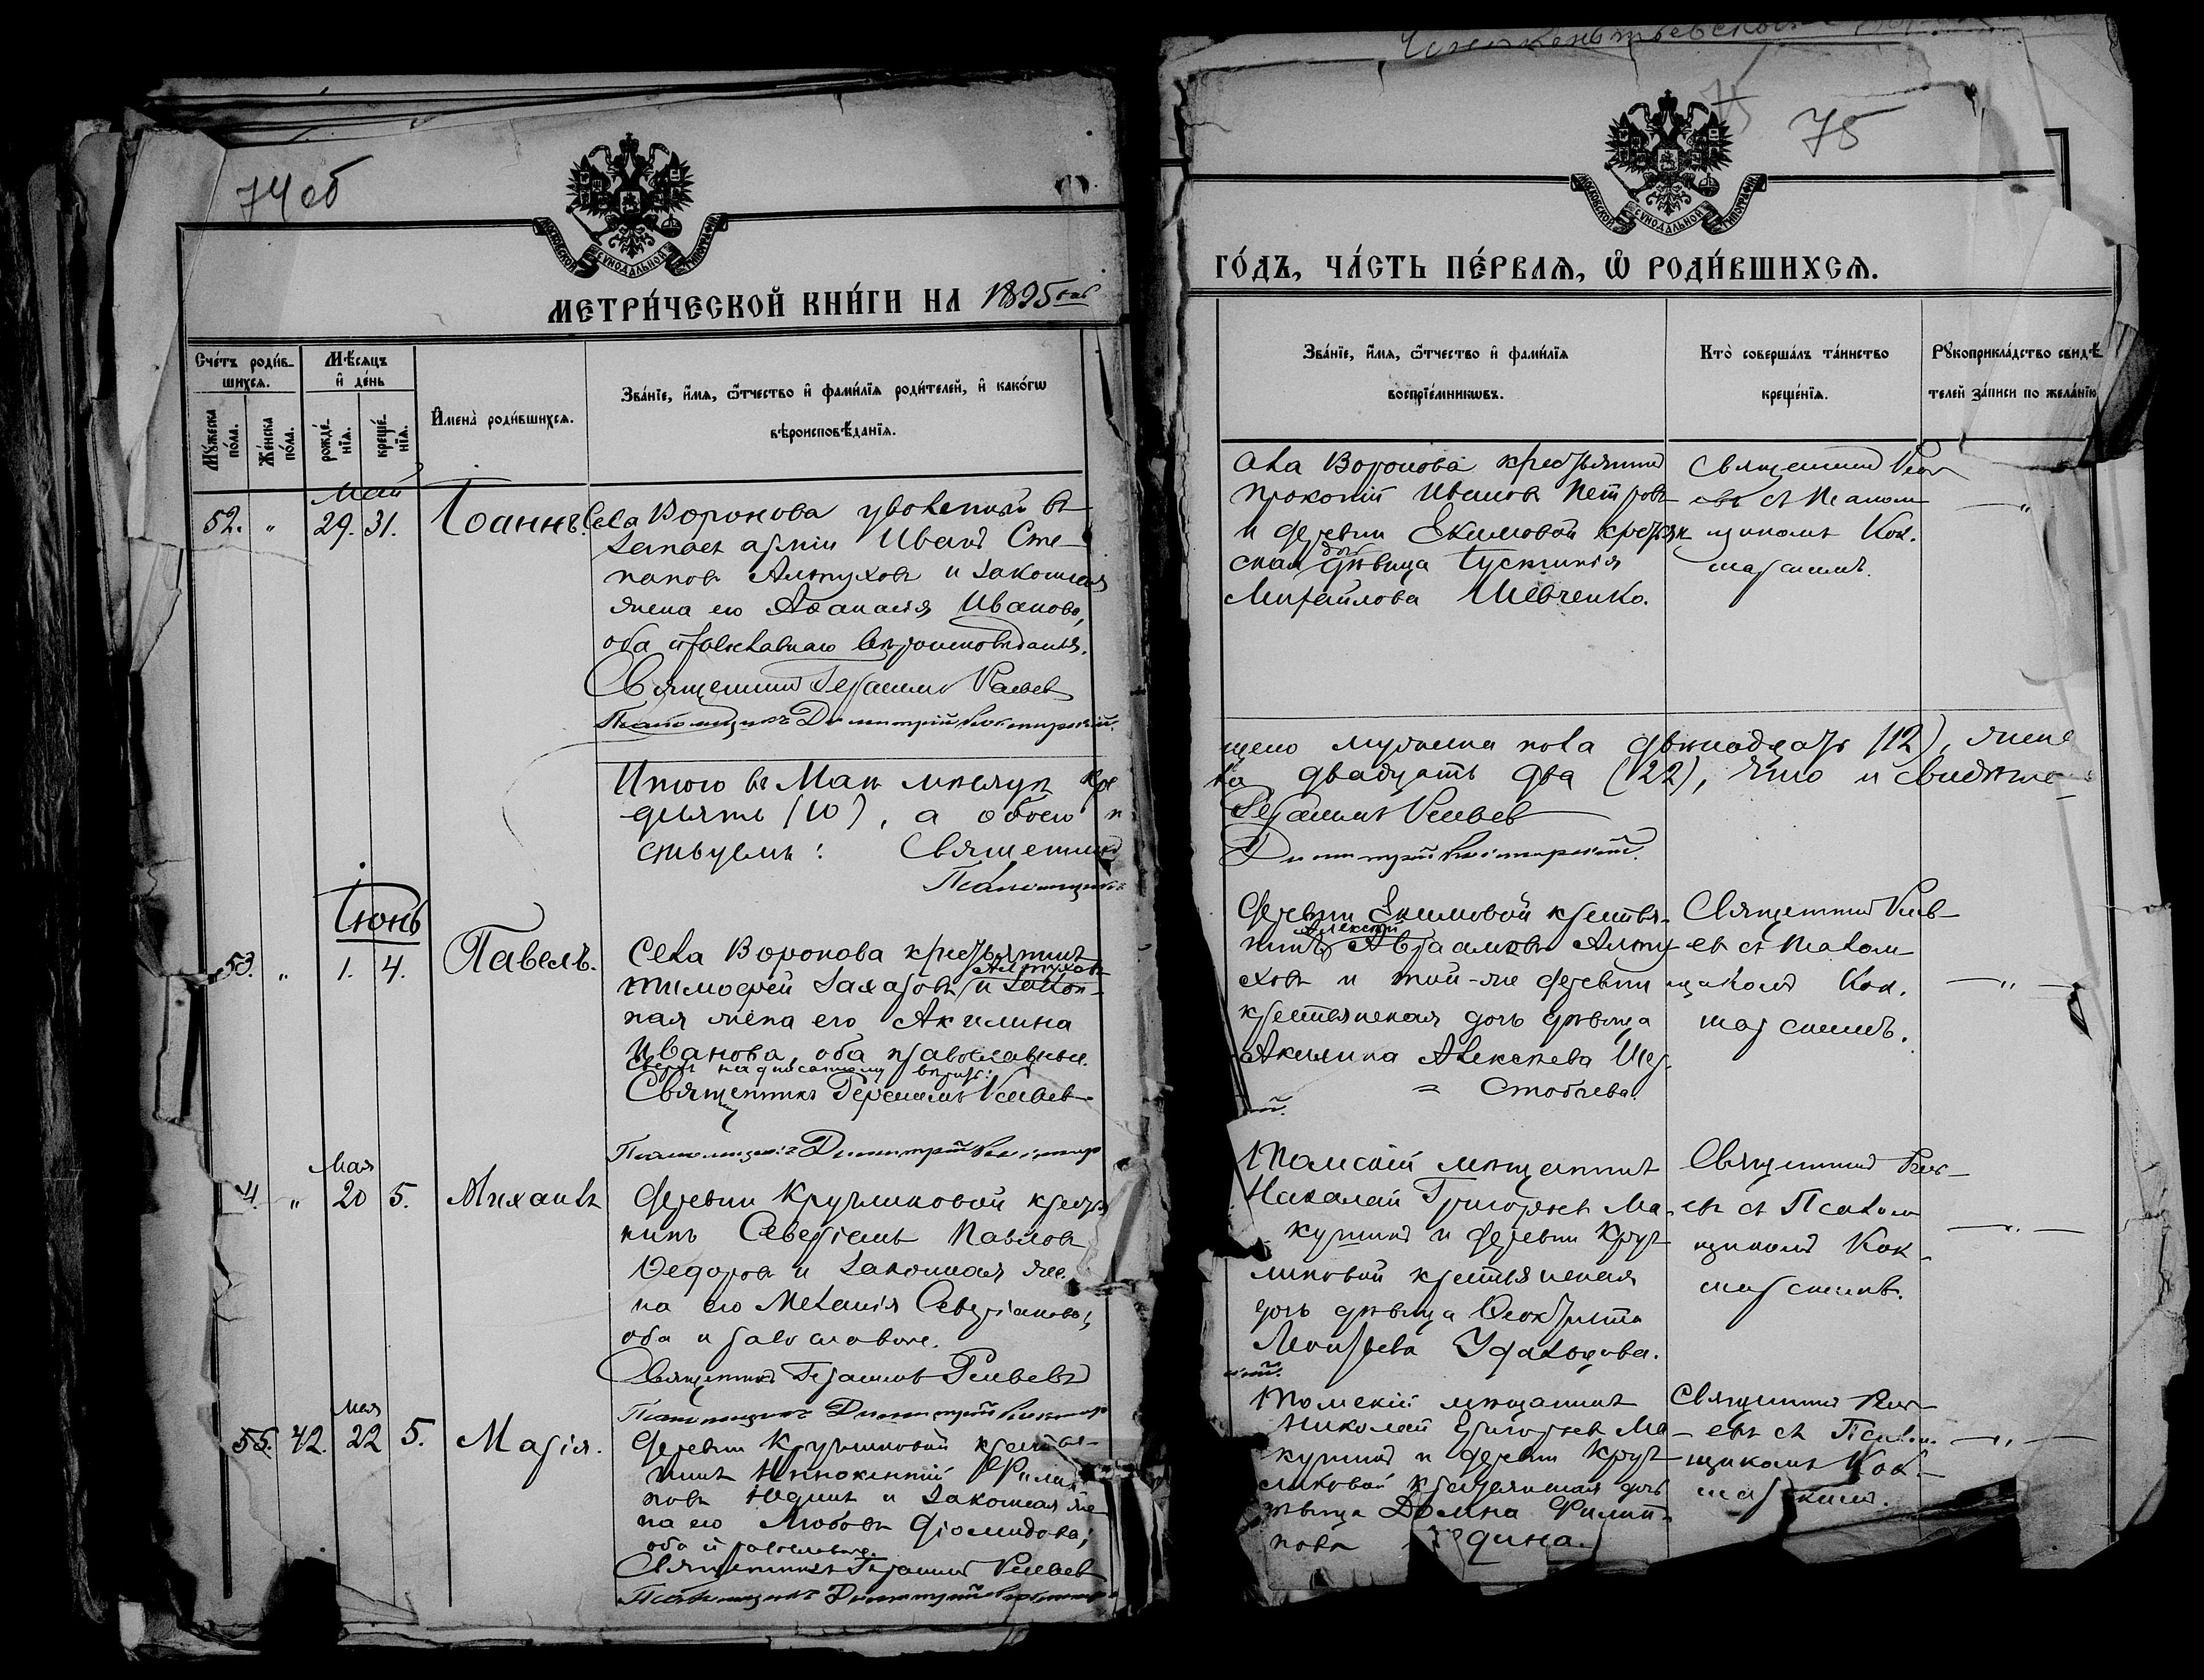 74 об
МОСКОВСКОЙ СѴНОДАЛЬНОЙ ТИПОГРАФІИ
МЕТРИ́ЧЕСКОЙ КНИ́ГИ НА 1895
Сче́тъ роди́в-
шихся.
Мѣ́сяцъ
и҆ де́нь
Му́жеска
по́ла.
Же́нска
по́ла.
рожде́-
нія.
креще́-
нія.
И҆мена̀ роди́вшихся.
Зва́нїе, и҆́мя, ѻ҆́тчество и҆ фами́лїя роди́телей, и҆ како́гѡ
вѣроисповѣ́данїя.
Май
52. " 29. 31. Іоаннъ.
Села Воронова уволенный въ
запасъ арміи Иванъ Сте-
пановъ Алтуховъ и законная
жена его Аѳанасія Иванова,
оба православнаго вѣроисповѣданія.
Священникъ Герасимъ
Псаломщикъ Димитрій
Итого въ Маѣ мѣсяцѣ
десять (10), а обоего п
ствуемъ: Священникъ
Псаломщикъ
Іюнь
53. " 1. 4. Павелъ.
Села Воронова крестьянинъ
Алтуховъ
Тимофей Захаровъ и закон-
ная жена его Акилина
Иванова, оба православные.
надписанному вѣрить:
Священникъ Герасимъ
Псаломщикъ Димитрій
Мая
4. " 20 5. Михаилъ
Деревни Кругликовой крестья
нинъ Северіанъ Павловъ
Федоровъ и законная же
на его Меланія Северіанова,
оба православные.
Священникъ Герасимъ
Псаломщикъ Димитрій
Мая
55. 42. 22 5. Марія.
Деревни Кругликовой крестья-
нинъ Иннокентій Филип
повъ Юдинъ и законная же
на его Любовь Діомидова;
оба православные.
Священникъ Герасимъ
Псаломщикъ Димитрій
75
75
МОСКОВСКОЙ СѴНОДАЛЬНОЙ ТИПОГРАФІИ
ГО́ДЪ, ЧА́СТЬ ПЕ́РВАЯ, Ѽ РОДИ́ВШИХСЯ.
Зва́нїе, и҆́мя, ѻ҆́тчество и҆ фами́лїя
воспрїе́мникѡвъ.
Кто̀ соверша́лъ та́инство
креще́нїя.
Рꙋкоприкла́дство свидѣ́-
телей за́писи по жела́нїю
ела Воронова крестьянинъ
Прокопій Ивановъ Петровъ
и деревни Екимовой крестьян
дочь
ская дѣвица Іустинія
Михайлова Шевченко.
Священникъ
съ Псалом
щикомъ
щено мужеска пола двѣнадцать (12), жене
ка двадцать два (22), что и свидѣтель
Герасимъ
Димитрій
Деревни Екимовой крестья-
Алексій
нинъ Авраамовъ Алту-
ховъ и той-же деревни
крестьянская дочь дѣвица
Акилина Алексѣева Шер
= стобаева.
Священникъ
съ Псалом-
щикомъ
Томскій мѣщанинъ
Николай Григорьевъ Ма-
кушинъ и деревни Круг
ликовой крестьянская
дочь дѣвица Феоктиста
Леонтьева
Священникъ
съ Псалом
щикомъ
Томскій мѣщанинъ
Николай Григорьевъ Ма
кушинъ и деревни Круг
ликовой крестьянская дочь
дѣвица Домна Филип-
пова дина.
Священникъ
съ Псалом
щикомъ